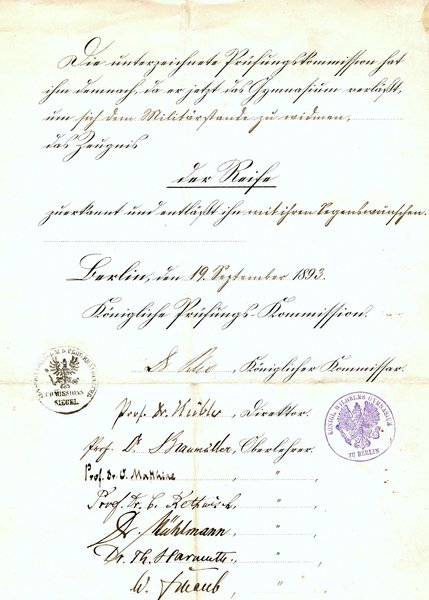 Die unterzeichnete Prüfungskommission hat
ihm demnach, da er jetzt das Gymnasium verläßt,
um sich dem Militärstande zu widmen,
das Zeugnis
der Reife
zuerkannt und entläßt ihn mit ihren Segenswünschen.
Berlin, den 19. September 1893.
Königliche Prüfungs-Kommission.
Königlicher Kommissar.
COMMISSION
SIEGEL.
Prof. Dr. Kübler, Direktor.
KÖNIGL. WILHELMS GYMNASIUM
ZU BERLIN
Prof. Dr. Oberlehrer.
Prof. Dr. O.
Prof. Dr.
Dr. Mühlmann
Dr. Th.
W.